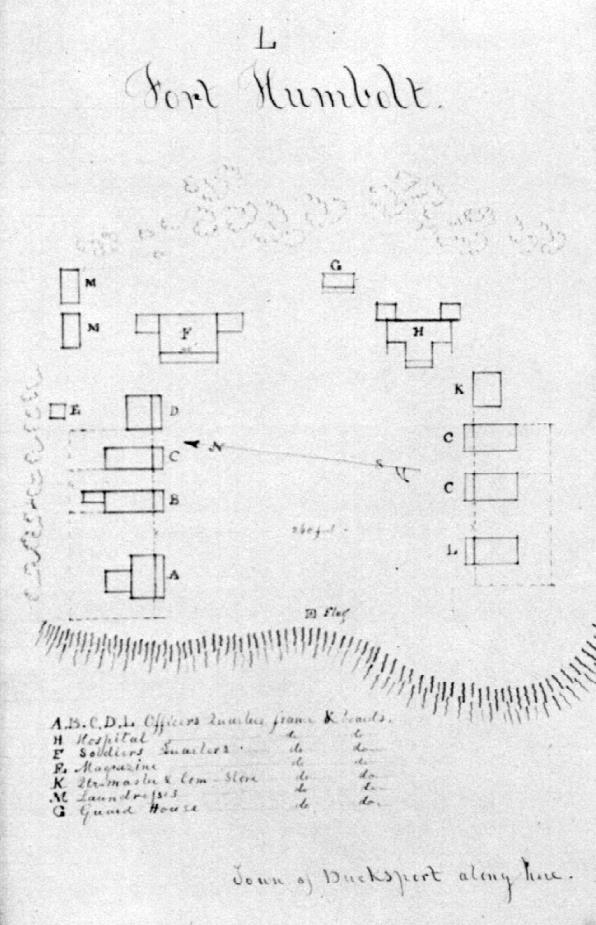 L
Fort Humbolt.
G
M
M
F
H
K
E
D
C
N
C
S
B
C
260 feet
L
A
Flag
A.B.C.D.L Officers Quarters frame & boards.
H Hospital do do
F Soldiers Quarters do do
E Magazine do do
K Qr. master & Com-Store do do
M Laundresses do do
G Guard House do do
Town of Bucksport along here.